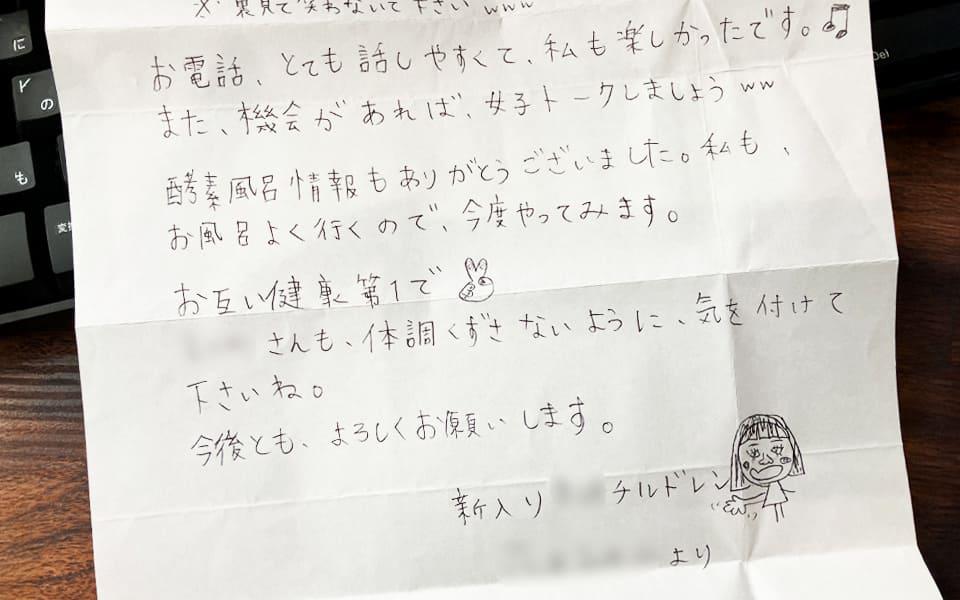 ※ 裏見て笑わないで下さいwww
お電話、とても話しやすくて、私も楽しかったです。♫
また、機会があれば、女子トークしましょうww
酵素風呂情報もありがとうございました。私も、
お風呂よく行くので、今度やってみます。
お互い健康第1で
さんも、体調くずさないように、気を付けて
下さいね。
今後とも、よろしくお願いします。
新入り チルドレン
より
に
の
も
変換
Del